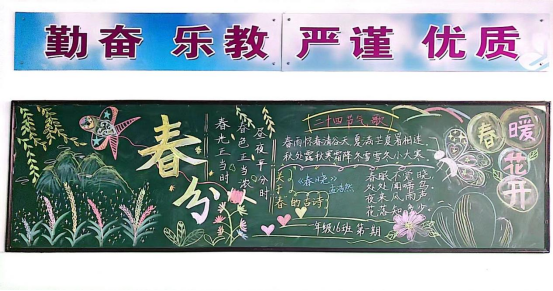 勤奋 乐教 严谨 优质
春分
昼夜平分时
春色正当农人
春光正当时
二十四节气歌
春雨惊春清谷天 夏满芒夏暑相连
秋处露秋寒霜降 冬雪雪冬小大寒
关于春的古诗
《春晓》
孟浩然
春眠不觉晓
处处闻啼鸟
夜来风雨声
花落知多少
一年级16班 第一期
春暖花开